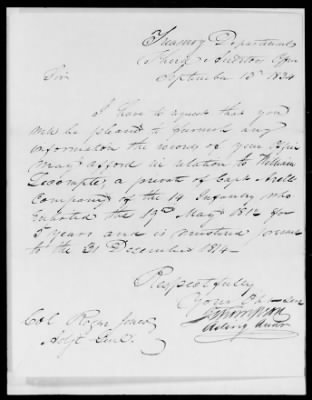 Treasury Department
Third Auditors Office
September 13th 1834
Sir
I have to request that you
will be pleased to furnish any
information the records of your Office
may afford in relation to William
Lecompte, a private of Capt
Company of the 14 Infantry who
enlisted the 19th May 1812 for
5 years and is mustered present
to the 31 December 1814
Respectfully
Your Obt. Servt
Thompson
Acting Audtr
Col Roger Jones
Adjt Genl.